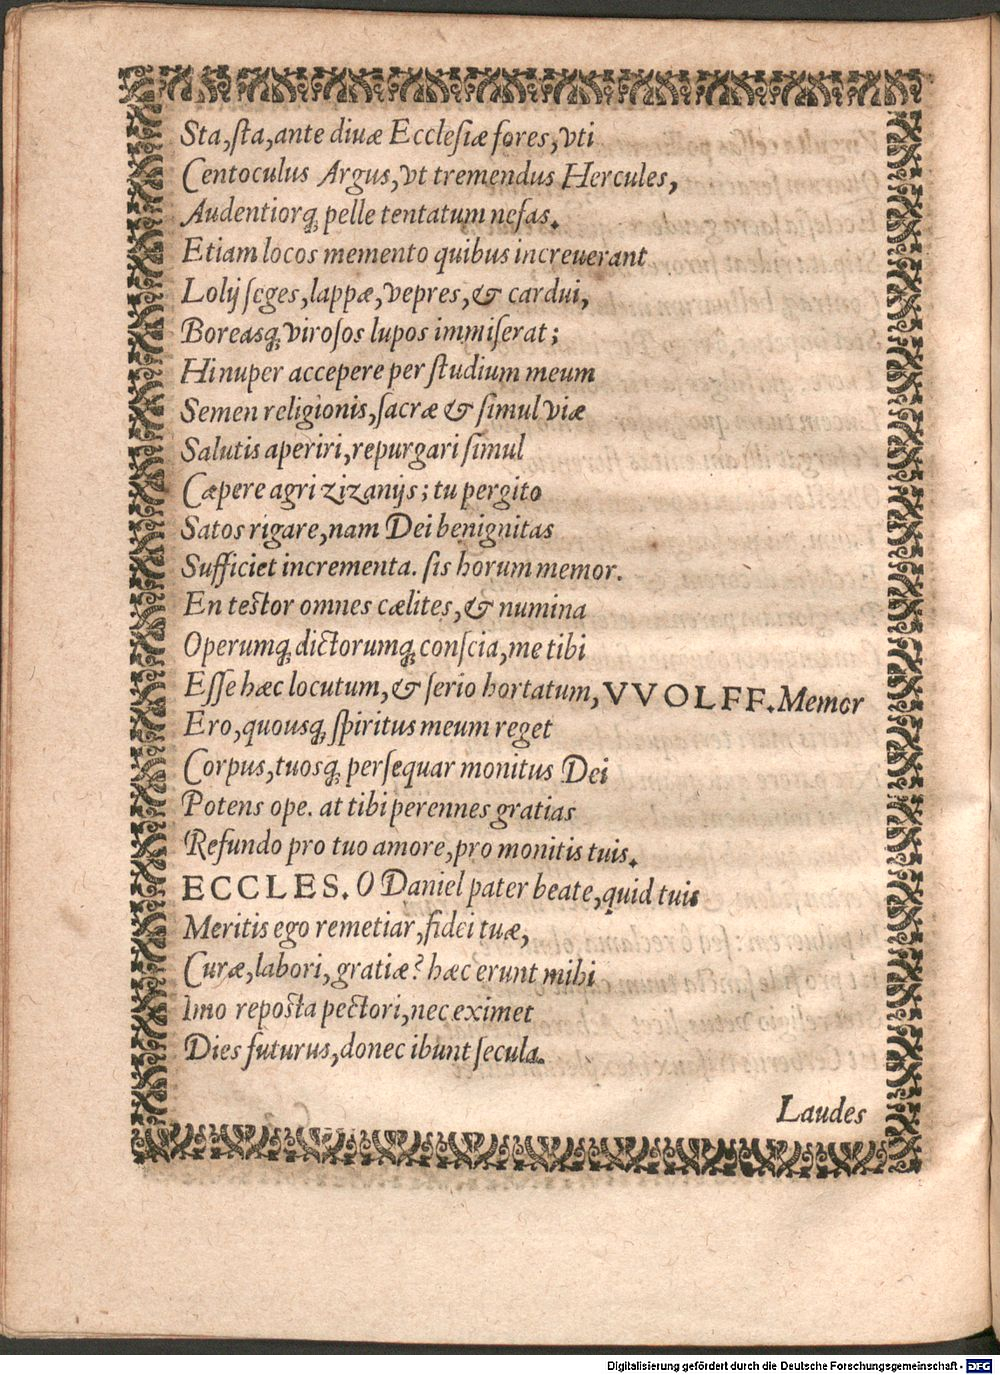 Sta, ſta, ante diuæ Eccleſiæ fores, vti
Centoculus Argus, vt tremendus Hercules,
Audentiorq; pelle tentatum nefas.
Etiam locos memento quibus increuerant
Lolij ſeges, lappæ, vepres, & cardui,
Boreasq; viroſos lupos immiſerat;
Hi nuper accepere per ſtudium meum
Semen religionis, ſacræ & ſimul viæ
Salutis aperiri, repurgari ſimul
Cæpere agri zizanijs; tu pergito
Satos rigare, nam Dei benignitas
Sufficiet incrementa. ſis horum memor.
En teſtor omnes cælites, & numina
Operumq; dictorumq; conſcia, me tibi
Eſſe hæc locutum, & ſerio hortatum, VVOLFF. Memor
Ero, quousq; ſpiritus meum reget
Corpus, tuosq; perſequar monitus Dei
Potens ope. at tibi perennes gratias
Refundo pro tuo amore, pro monitis tuis.
ECCLES. O Daniel pater beate, quid tuis
Meritis ego remetiar, fidei tuæ,
Curæ, labori, gratiæ? hæc erunt mihi
Imo repoſta pectori, nec eximet
Dies futurus, donec ibunt ſecula.
Laudes
Digitalisierung gefördert durch die Deutsche Forschungsgemeinschaft - DFG